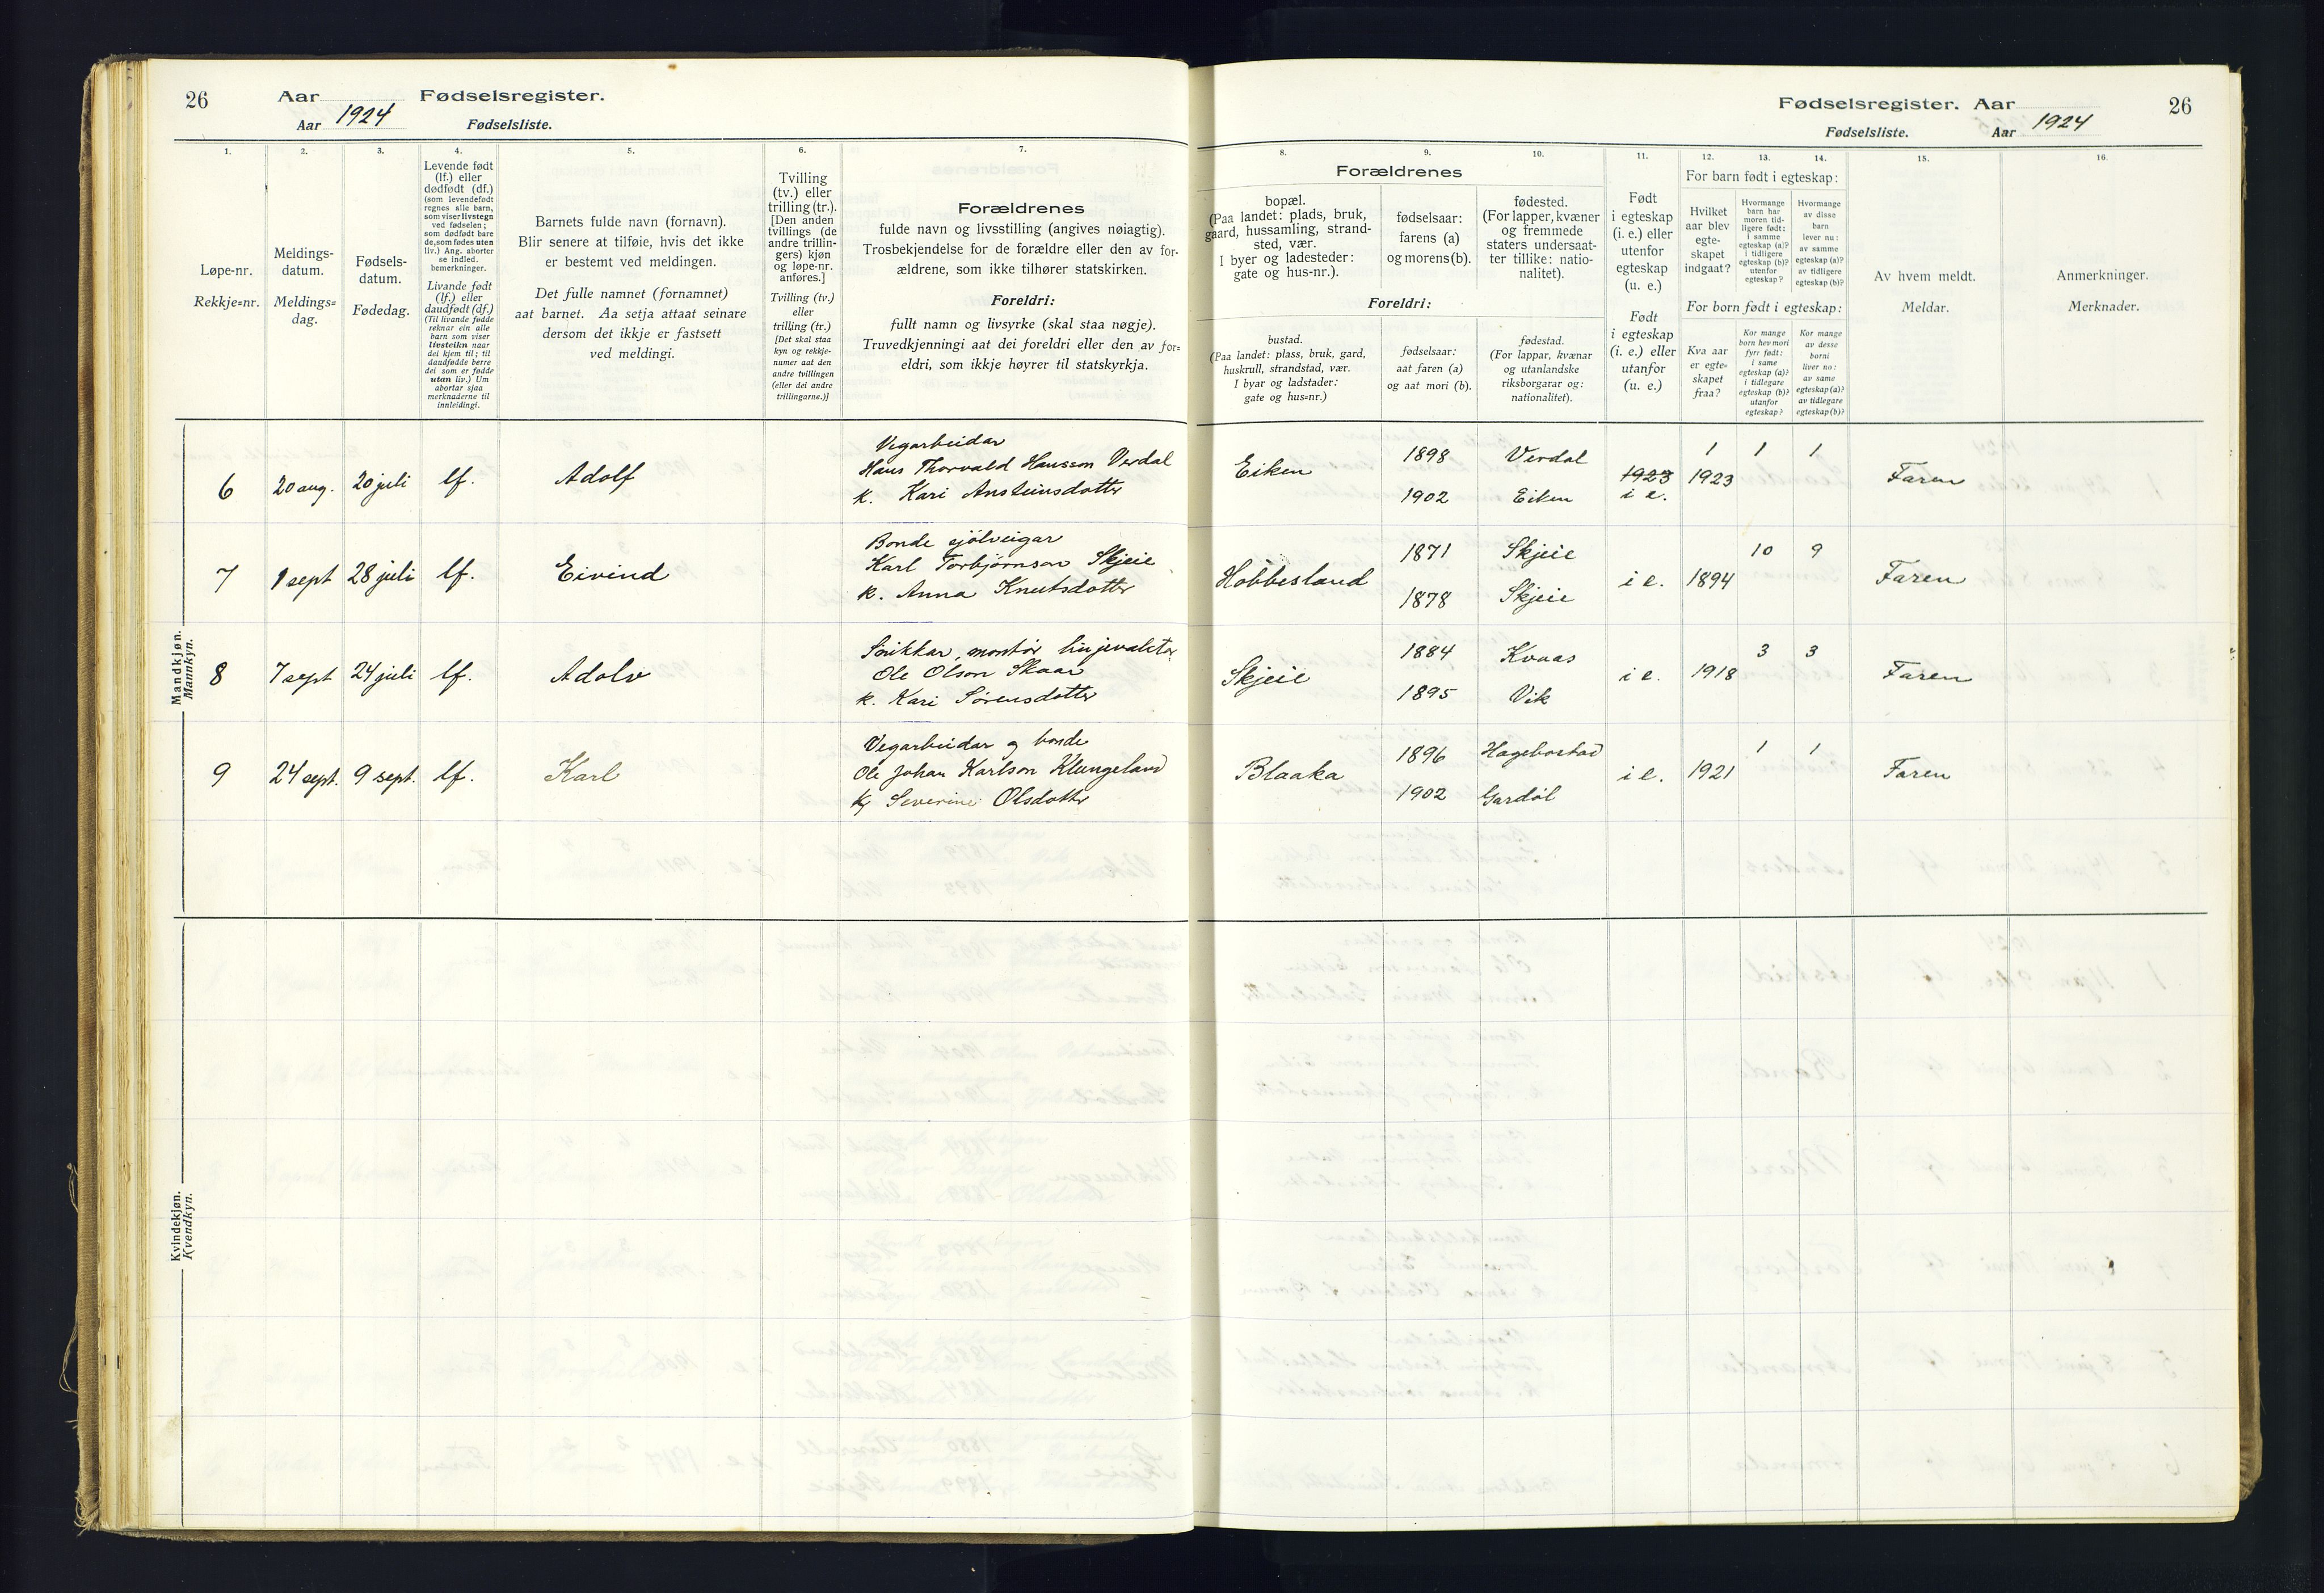 26
Aar Fødselsregister.
Aar 1924 Fødselsliste.
Fødselsregister. Aar
26
Fødselsliste. Aar 1924
1. 2. 3. 4. 5. 6. 7. 8. 9. 10. 11. 12. 13. 14. 15. 16.
Løpe-nr.
Rekkje=nr.
Meldings-
datum.
Meldings=
dag.
Fødsels-
datum.
Fødedag.
Levende født
(lf.) eller
dødfødt (df.)
(som levendefødt
regnes alle barn,
som viser livstegn
ved fødselen;
som dødfødt bare
de, som fødes uten
liv.) Ang. aborter
se indled.
bemerkninger.
Livande født
(lf.) eller
daudfødt (df.)
(Til livande fødde
reknar ein alle
barn som viser
livsteikn naar
dei kjem til; til
daudfødde berre
dei som er fødde
utan liv.) Um
abortar sjaa
merknaderne til
innleidingi.
Barnets fulde navn (fornavn).
Blir senere at tilføie, hvis det ikke
er bestemt ved meldingen.
Det fulle namnet (fornamnet)
aat barnet. Aa setja attaat seinare
dersom det ikkje er fastsett
ved meldingi.
Tvilling
(tv.) eller
trilling (tr.).
[Den anden
tvillings (de
andre trillin-
gers) kjøn
og løpe-nr.
anføres.]
Tvilling (tv.)
eller
trilling (tr.)
[Det skal staa
kyn og rekkje-
numer aat den
andre tvillingen
(eller dei andre
trillingarne.)]
Forældrenes
fulde navn og livsstilling (angives nøiagtig).
Trosbekjendelse for de forældre eller den av for-
ældrene, som ikke tilhører statskirken.
Foreldri:
fullt namn og livsyrke (skal staa nøgje).
Truvedkjenningi aat dei foreldri eller den av for=
eldri, som ikkje høyrer til statskyrkja.
Forældrenes
bopæl.
(Paa landet: plads, bruk,
gaard, hussamling, strand-
sted, vær.
I byer og ladesteder:
gate og hus-nr.).
fødselsaar:
farens (a)
og morens (b).
fødested.
(For lapper, kvæner
og fremmede
staters undersaat-
ter tillike: natio-
nalitet).
Foreldri:
bustad.
(Paa landet: plass, bruk, gard,
huskrull, strandstad, vær.
I byar og ladstader:
gate og hus=nr.)
fødselsaar:
aat faren (a)
og aat mori (b).
fødestad.
(For lappar, kvænar
og utanlandske
riksborgarar og:
nationalitet).
Født
i egteskap
(i. e.) eller
utenfor
egteskap
(u. e.)
Født
i egteskap
(i. e.) eller
utanfor
(u. e.)
For barn født i egteskap:
Hvilket
aar blev
egte-
skapet
indgaat?
Hvormange
barn har
moren tid-
ligere født:
i samme
egteskap (a)?
i tidligere
egteskap (b)?
utenfor
egteskap?
Hvormange
av disse
barn
lever nu:
av samme
egteskap (a)?
av tidligere
egteskap (b)?
For born født i egteskap:
Kva aar
er egte-
skapet
fraa?
Kor mange
born hev mori
fyrr født:
i same
egteskap (a)?
i tidlegare
egteskap (b)?
utanfor
egteskap?
Kor mange
av desse
borni
liver no:
av same
egteskap (a)?
av tidlegare
egteskap (b)?
Av hvem meldt.
Meldar.
Anmerkninger.
Merknader.
Mandkjøn.
Mannkyn.
Vegarbeidar
6 20 aug. 20 juli lf. Adolf Hans Thorvald Hansson Verdal
k. Kari Ansteinsdotter
Eiken 1898 Verdal 1923 1923 1 1 1 Faren
1902 Eiken i e.
Bonde sjölveigar
7 1 sept 28 juli lf. Eivind Karl Torbjørnson Skjeie
k. Anna Knutsdotter
Höbbesland 1871 Skjeie i e. 1894 10 9 Faren
1878 Skjeie
Snikkar, montør
8 7 sept 24 juli lf. Adolv Ole Olson Skaar
k. Kari Sörensdotter
Skjeie 1884 Kvaas i e. 1918 3 3 Faren
1895 Vik
Vegarbeidar og bonde
9 24 sept. 9 sept. lf. Karl Ole Johan Karlson Klungeland
k. Severine Olsdotter
Blaaka 1896 Hægebostad i e. 1921 1 1 Faren
1902 Gardöl
Kvindekjøn.
Kvendkyn.